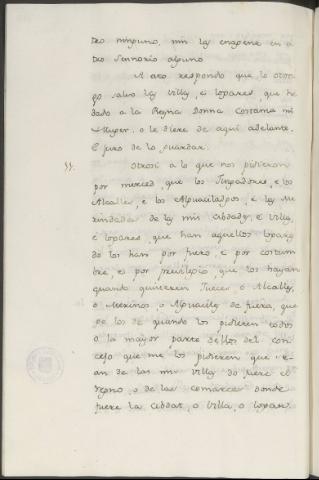 tro ninguno, nin las enagene en o
tro Sennorio alguno
A esto respondo que lo otor
go salvo las villas, e logares que he
dado a la Reyna Donna Costanza mi
Muger, o le diere de aqui adelante.
E juro de lo guardar.
Otrosi a lo que nos pidieron
por merced que los Juzgadores, e los
Alcalles, e los Alguaciladgos, e las Me
rindades de las mis cibdades, e villas,
e logares que han aquellos logares
do los han por fuero, e por costum
bre, e por previlegio que los hayan
quando quisieren Jueces o Alcalles,
o Merinos, o Alguaciles de fuera, que
ge los dé quando los pidieren todos
o la mayor parte dellos del con
cejo que me los pidieren que se
an de las mis villas do fuere el
regno, o de las comarcas donde
fuere la cibdat, o villa, o logar.